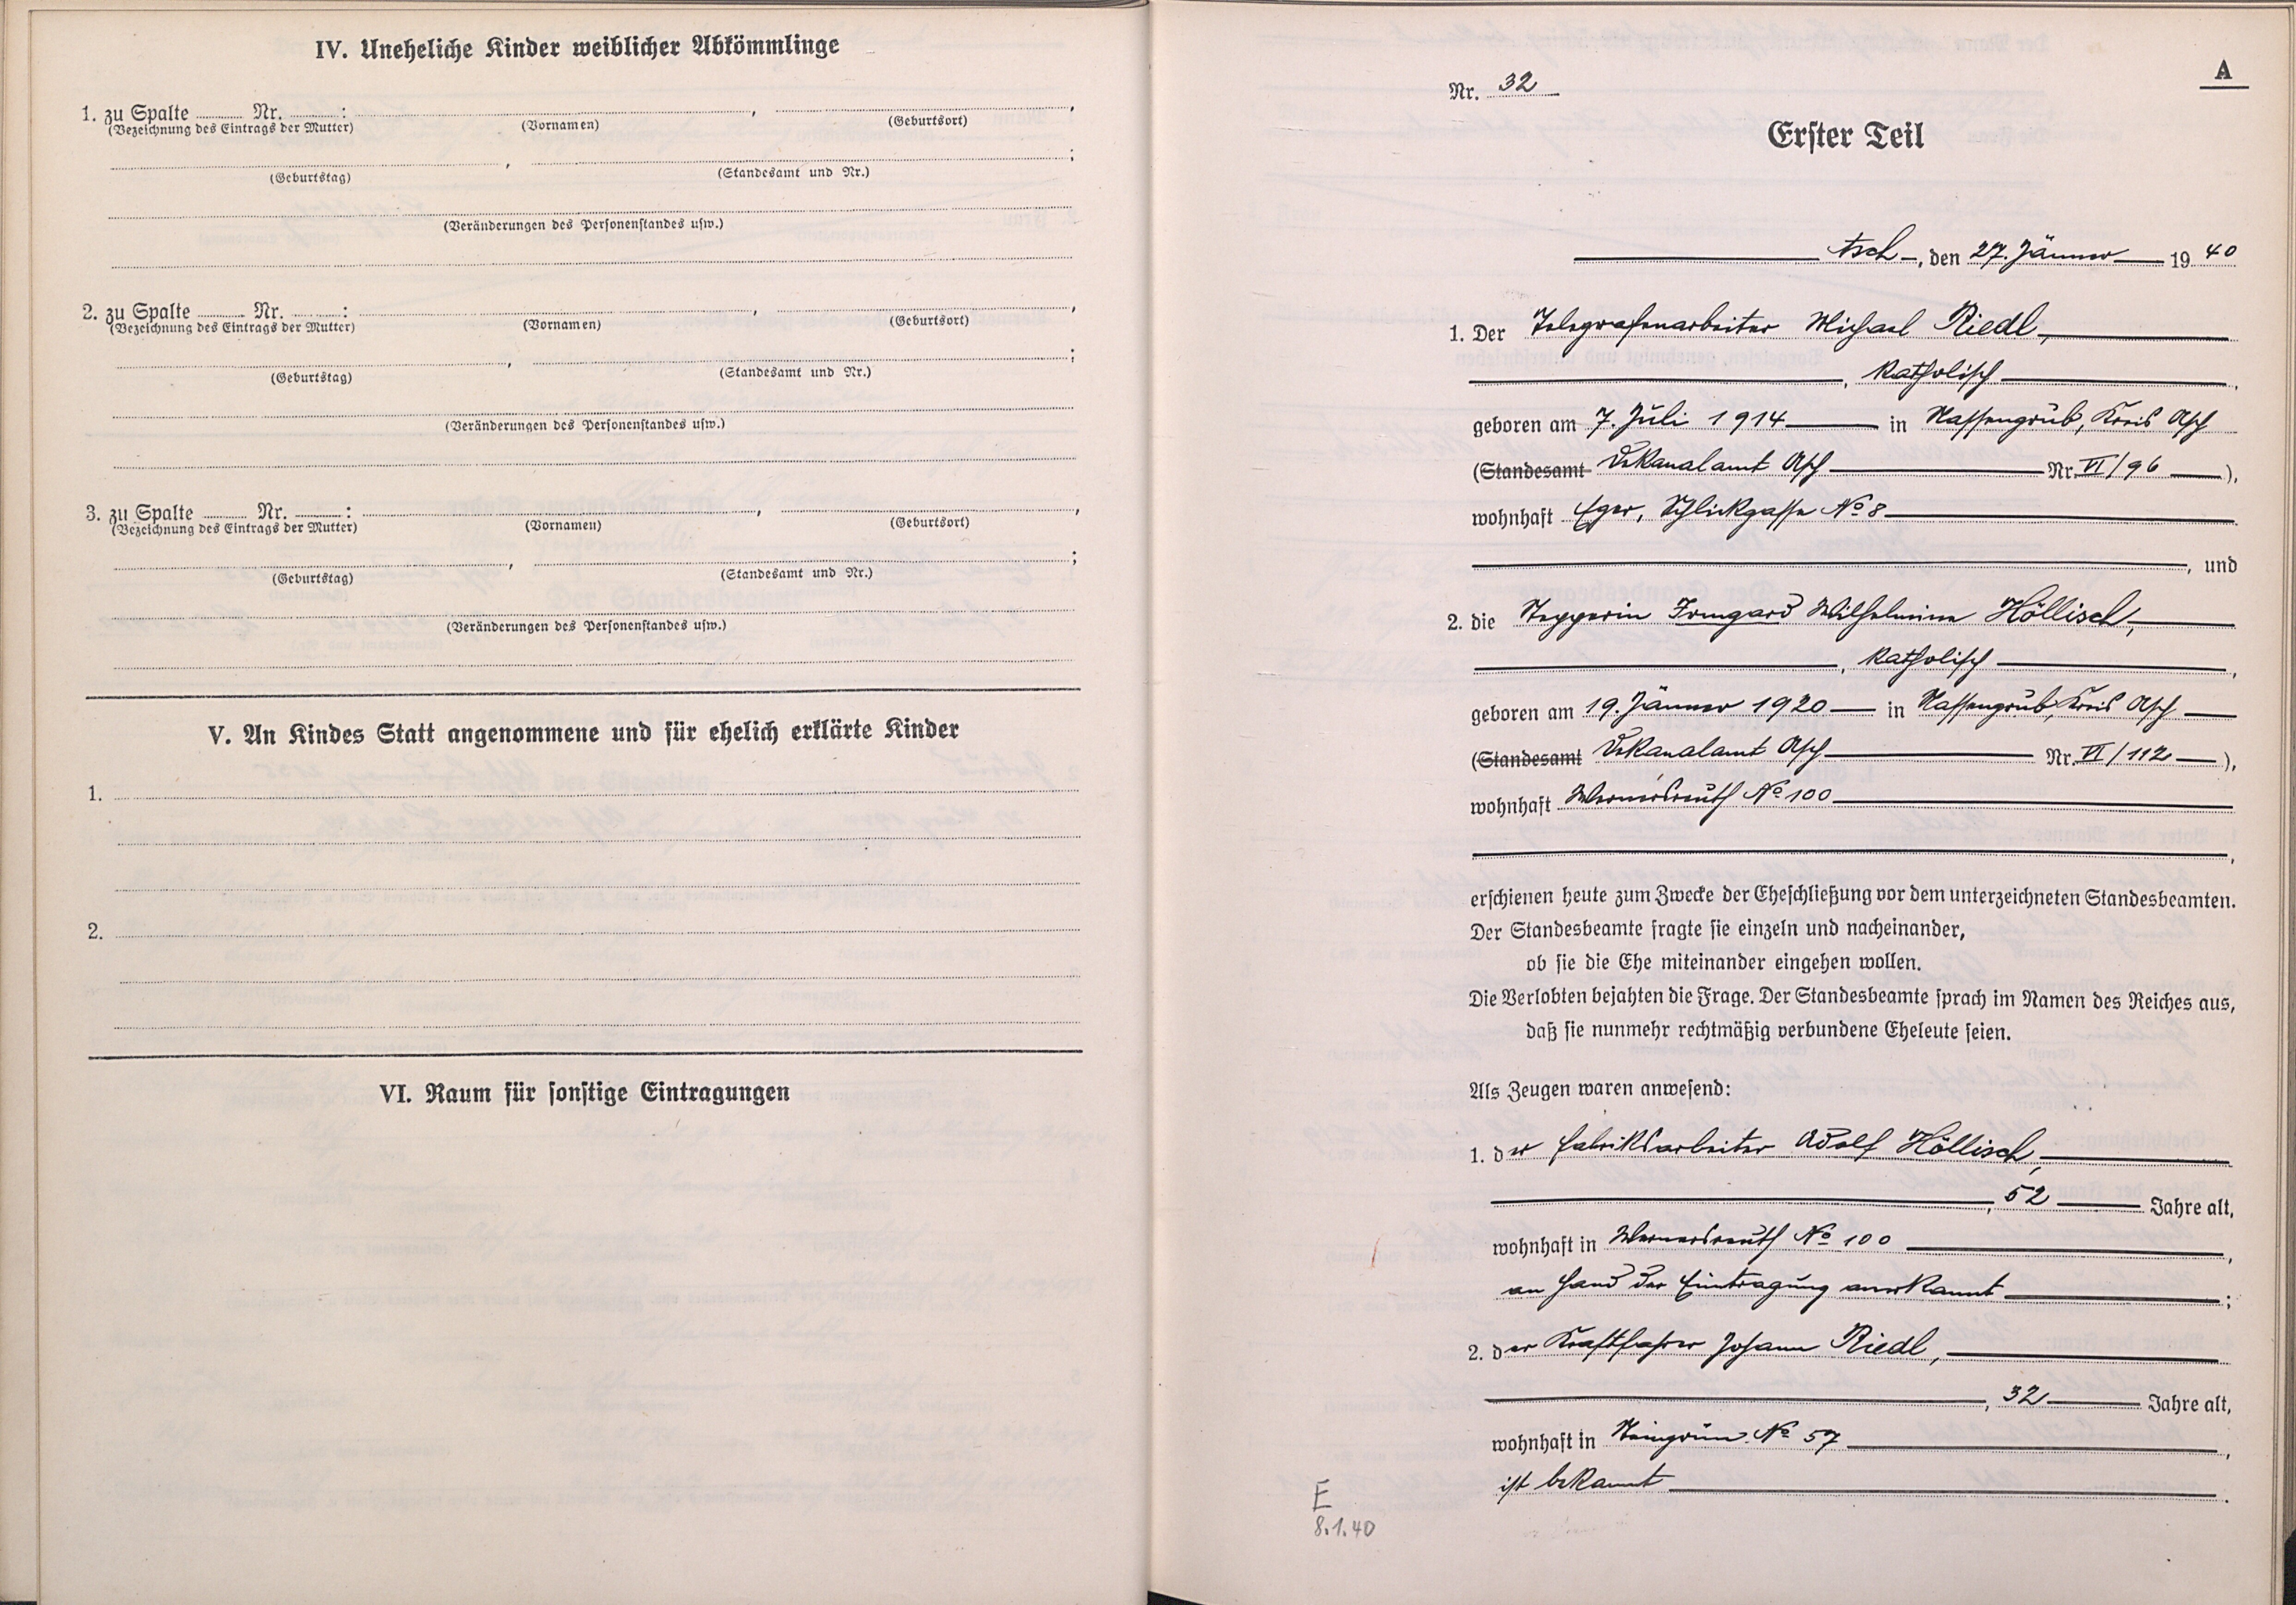 IV. Uneheliche Kinder weiblicher Abkömmlinge
1. zu Spalte ........ Nr. ........ : ........ , ........ ,
(Bezeichnung des Eintrags der Mutter) (Vornamen) (Geburtsort)
........ , ........ ;
(Geburtstag) (Standesamt und Nr.)
(Veränderungen des Personenstandes usw.)
2. zu Spalte ........ Nr. ........ : ........ , ........ ,
(Bezeichnung des Eintrags der Mutter) (Vornamen) (Geburtsort)
........ , ........ ;
(Geburtstag) (Standesamt und Nr.)
(Veränderungen des Personenstandes usw.)
3. zu Spalte ........ Nr. ........ : ........ , ........ ,
(Bezeichnung des Eintrags der Mutter) (Vornamen) (Geburtsort)
........ , ........ ;
(Geburtstag) (Standesamt und Nr.)
(Veränderungen des Personenstandes usw.)
V. An Kindes Statt angenommene und für ehelich erklärte Kinder
1.
2.
VI. Raum für sonstige Eintragungen
A
Nr. 32
Erster Teil
Asch, den 27. Jänner 19 40
1. Der Telegrafenarbeiter Michael Riedl,
, katholisch ,
geboren am 7. Juli 1914 in Nassengrub, Kreis Asch
(Standesamt Dekanalamt Asch Nr. VI/96 ),
wohnhaft Eger, Schlickgasse No 8
, und
2. die Stepperin Irmgard Wilhelmine Höllisch,
, katholisch ,
geboren am 19. Jänner 1920 in Nassengrub, Kreis Asch
(Standesamt Dekanalamt Asch Nr. VI/112 ),
wohnhaft Wernersreuth No 100
,
erschienen heute zum Zwecke der Eheschließung vor dem unterzeichneten Standesbeamten.
Der Standesbeamte fragte sie einzeln und nacheinander,
ob sie die Ehe miteinander eingehen wollen.
Die Verlobten bejahten die Frage. Der Standesbeamte sprach im Namen des Reiches aus,
daß sie nunmehr rechtmäßig verbundene Eheleute seien.
Als Zeugen waren anwesend:
1. der Fabriksarbeiter Adolf Höllisch,
, 52 Jahre alt,
wohnhaft in Wernersreuth No 100 ,
an Hand der Eintragung anerkannt ;
2. der Kraftfahrer Johann Riedl,
, 32 Jahre alt,
wohnhaft in Steingrün No 57 ,
ist bekannt .
E
8.1.40